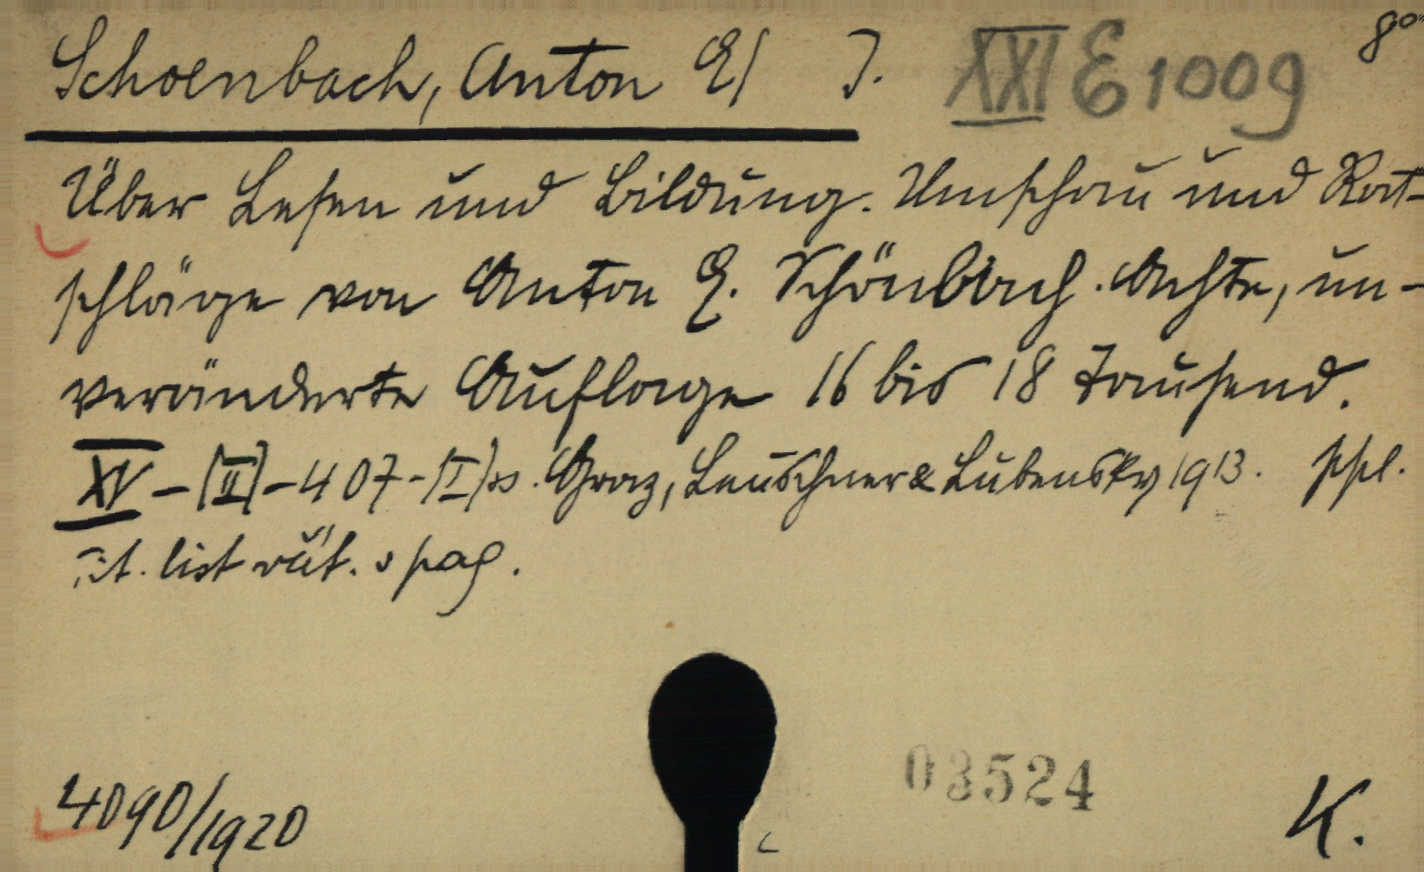 Schoenbach, Anton E/ J. XXI E 1009 8°
Über Lesen und Bildung. Umschau und Rat-
schläge von Anton E. Schönbach. Achte, un-
veränderte Auflage 16 bis 18 Tausend.
XV-(II)-407-(I) ss. Graz, Leuschner & Lubensky 1913. ppl.
Tit. list rüt. s pag.
4090/1920 03524 K.